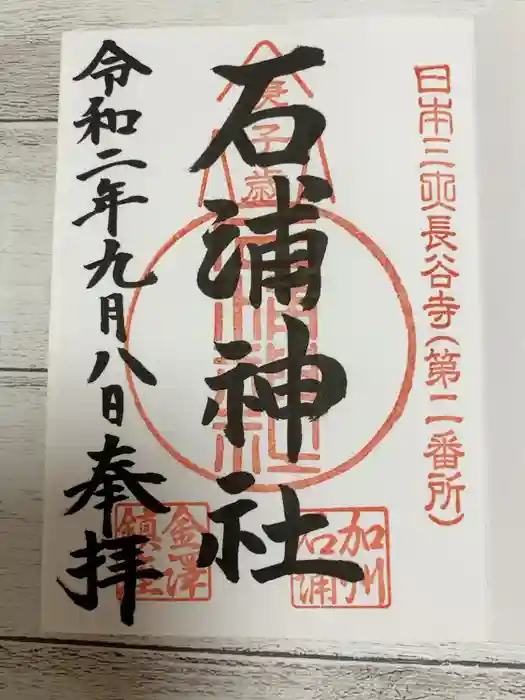 日本三大長谷寺(第二番所)
庚子歳
石浦神社
加州
石浦
金澤
鎮座
令和二年九月八日奉拝